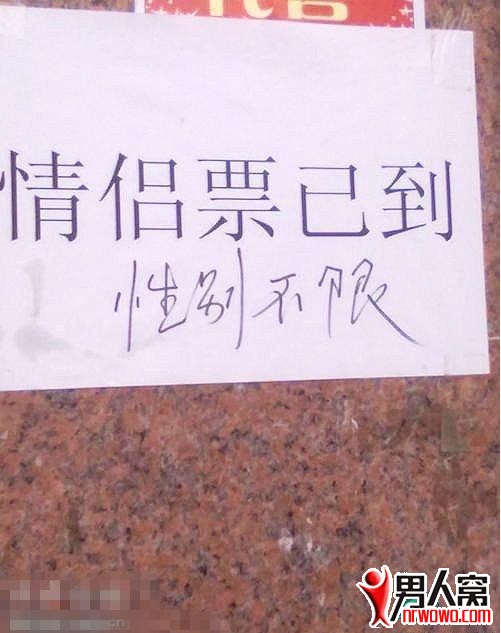 情侣票已到
性别不限
男人窝
nrwowo.com